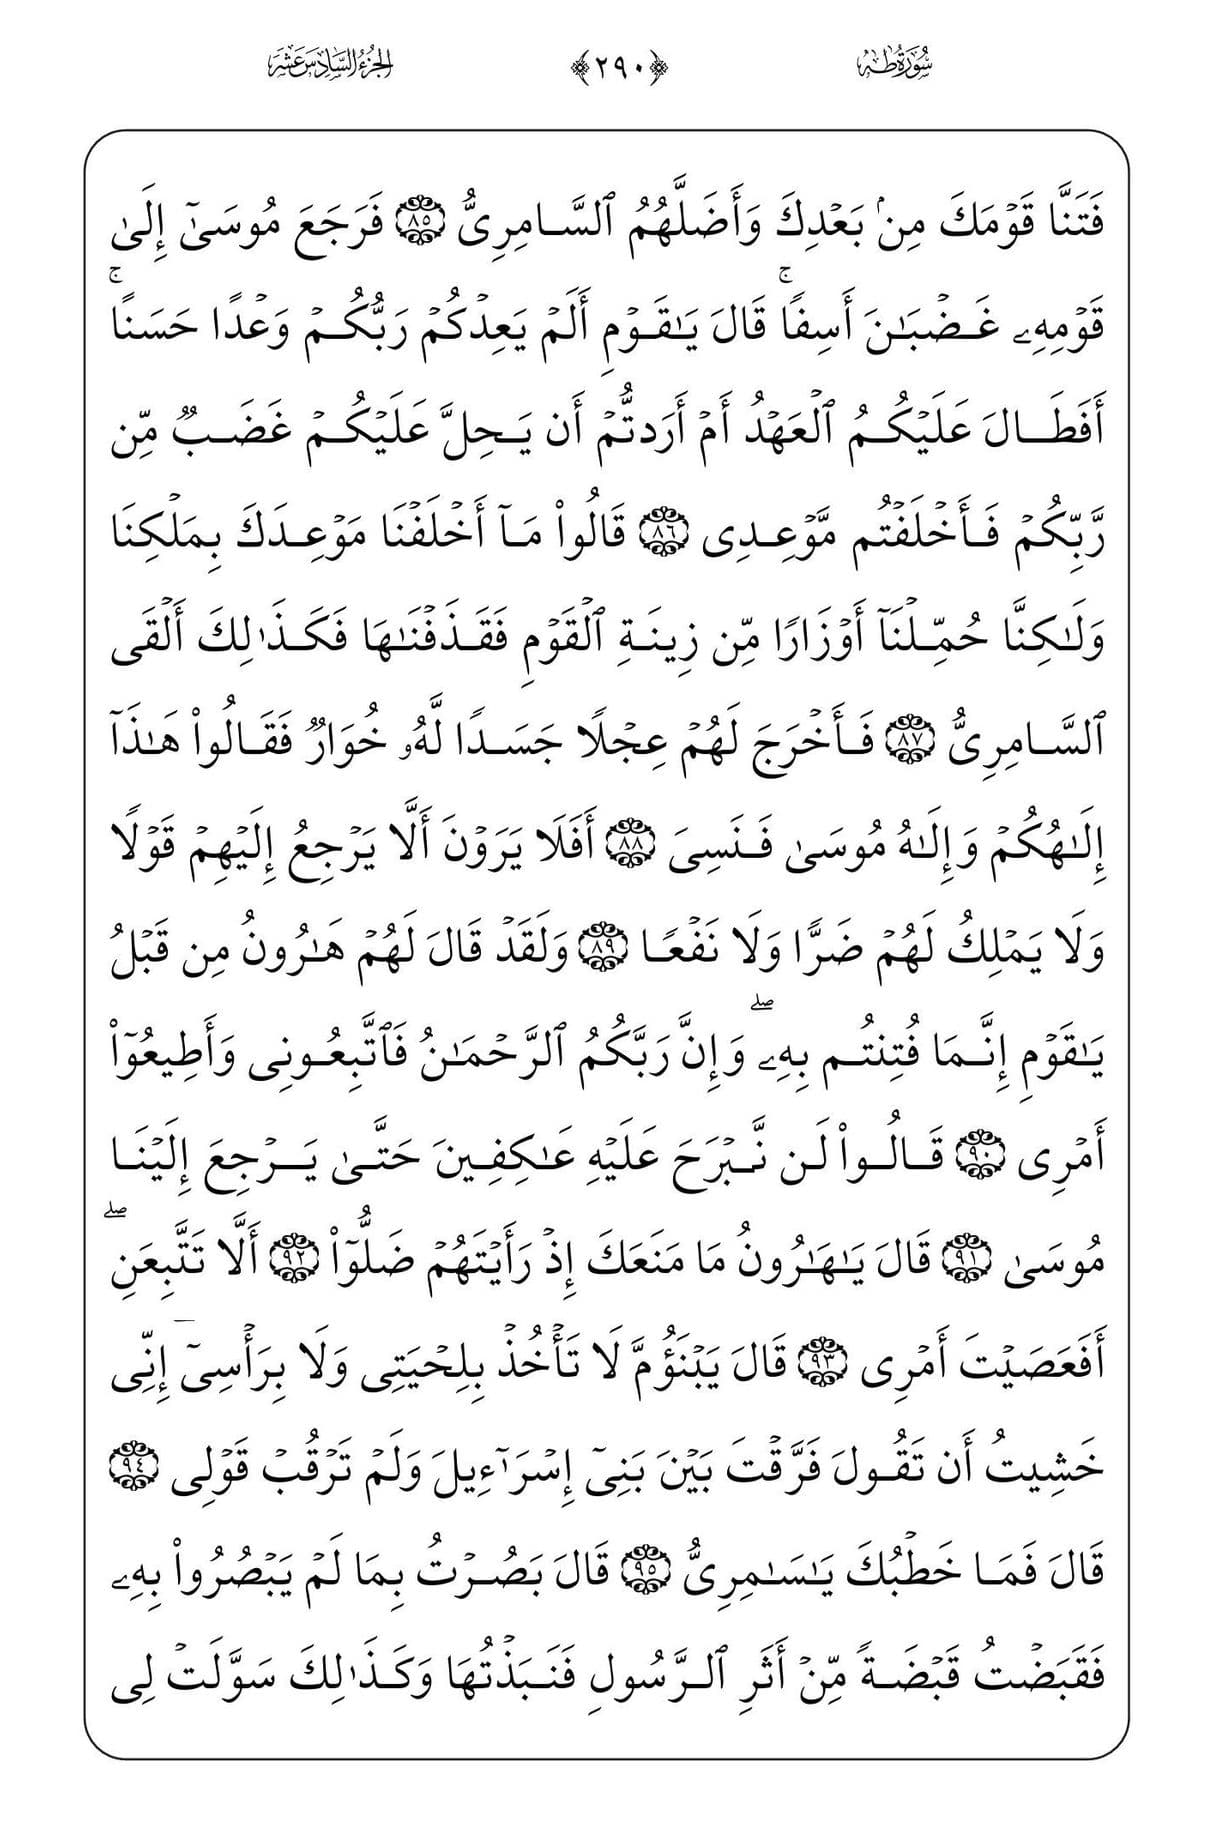 سُورَةُ طه ﴿٢٩٠﴾ الجُزْءُ السَّادِسَ عَشَرَ
فَتَنَّا قَوْمَكَ مِنۢ بَعْدِكَ وَأَضَلَّهُمُ ٱلسَّامِرِىُّ ٨٥ فَرَجَعَ مُوسَىٰٓ إِلَىٰ
قَوْمِهِۦ غَضْبَـٰنَ أَسِفًاۚ قَالَ يَـٰقَوْمِ أَلَمْ يَعِدْكُمْ رَبُّكُمْ وَعْدًا حَسَنًاۚ
أَفَطَالَ عَلَيْكُمُ ٱلْعَهْدُ أَمْ أَرَدتُّمْ أَن يَحِلَّ عَلَيْكُمْ غَضَبٌ مِّن
رَّبِّكُمْ فَأَخْلَفْتُم مَّوْعِدِى ٨٦ قَالُوا۟ مَآ أَخْلَفْنَا مَوْعِدَكَ بِمَلْكِنَا
وَلَـٰكِنَّا حُمِّلْنَآ أَوْزَارًا مِّن زِينَةِ ٱلْقَوْمِ فَقَذَفْنَـٰهَا فَكَذَٰلِكَ أَلْقَى
ٱلسَّامِرِىُّ ٨٧ فَأَخْرَجَ لَهُمْ عِجْلًا جَسَدًا لَّهُۥ خُوَارٌ فَقَالُوا۟ هَـٰذَآ
إِلَـٰهُكُمْ وَإِلَـٰهُ مُوسَىٰ فَنَسِىَ ٨٨ أَفَلَا يَرَوْنَ أَلَّا يَرْجِعُ إِلَيْهِمْ قَوْلًا
وَلَا يَمْلِكُ لَهُمْ ضَرًّا وَلَا نَفْعًا ٨٩ وَلَقَدْ قَالَ لَهُمْ هَـٰرُونُ مِن قَبْلُ
يَـٰقَوْمِ إِنَّمَا فُتِنتُم بِهِۦۖ وَإِنَّ رَبَّكُمُ ٱلرَّحْمَـٰنُ فَٱتَّبِعُونِى وَأَطِيعُوٓا۟
أَمْرِى ٩٠ قَالُوا۟ لَن نَّبْرَحَ عَلَيْهِ عَـٰكِفِينَ حَتَّىٰ يَرْجِعَ إِلَيْنَا
مُوسَىٰ ٩١ قَالَ يَـٰهَـٰرُونُ مَا مَنَعَكَ إِذْ رَأَيْتَهُمْ ضَلُّوٓا۟ ٩٢ أَلَّا تَتَّبِعَنِۖ
أَفَعَصَيْتَ أَمْرِى ٩٣ قَالَ يَبْنَؤُمَّ لَا تَأْخُذْ بِلِحْيَتِى وَلَا بِرَأْسِىٓ إِنِّى
خَشِيتُ أَن تَقُولَ فَرَّقْتَ بَيْنَ بَنِىٓ إِسْرَٰٓءِيلَ وَلَمْ تَرْقُبْ قَوْلِى ٩٤
قَالَ فَمَا خَطْبُكَ يَـٰسَـٰمِرِىُّ ٩٥ قَالَ بَصُرْتُ بِمَا لَمْ يَبْصُرُوا۟ بِهِۦ
فَقَبَضْتُ قَبْضَةً مِّنْ أَثَرِ ٱلرَّسُولِ فَنَبَذْتُهَا وَكَذَٰلِكَ سَوَّلَتْ لِى